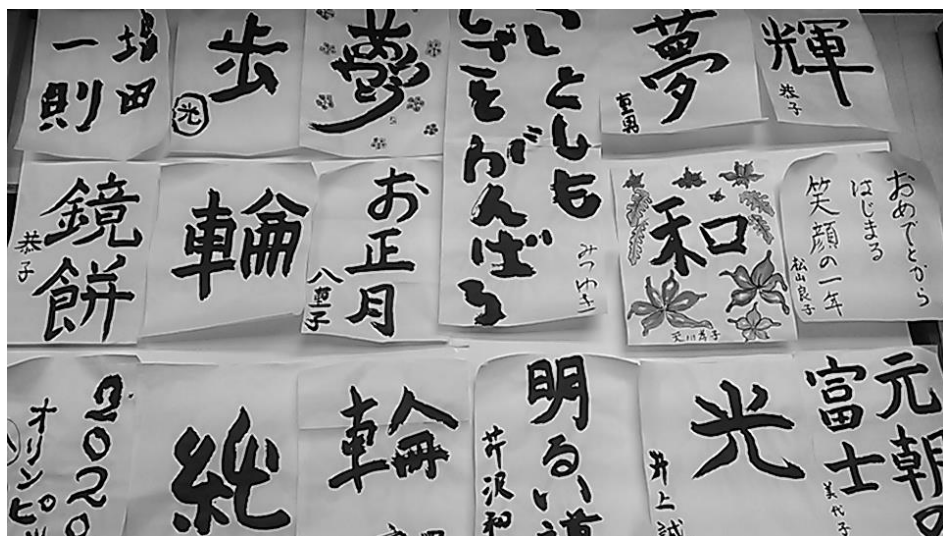 田
一則
歩
光
夢
ことしも
がんばる
みつゆき
夢
重男
輝
恭子
鏡餅
恭子
輪
お正月
八重子
和
おめでとから
はじまる
笑顔の一年
松山良子
2020
オリンピ
純
輪
明るい道
芹沢和
光
井上誠
元朝
富士
美代子